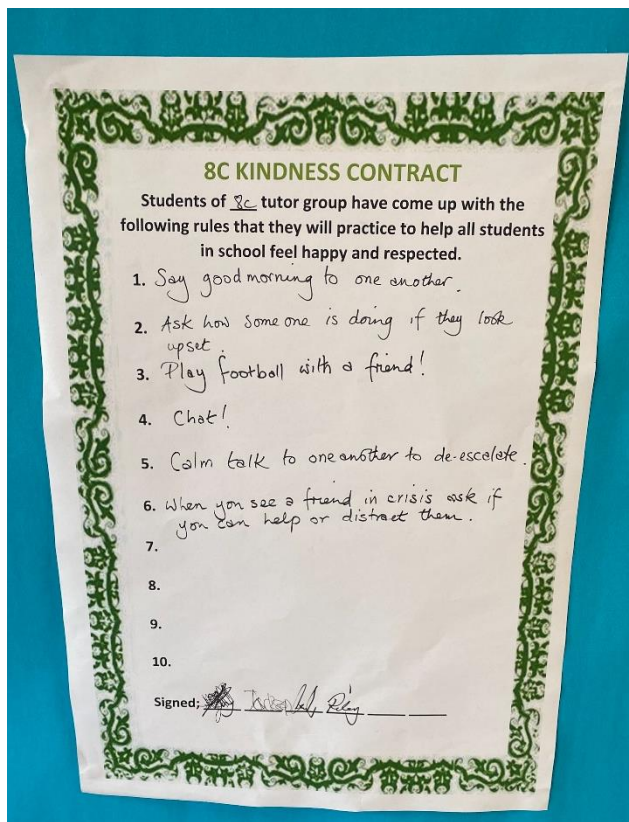 8C KINDNESS CONTRACT
Students of 8c tutor group have come up with the
following rules that they will practice to help all students
in school feel happy and respected.
1. Say good morning to one another.
2. Ask how some one is doing if they look
upset.
3. Play football with a friend!
4. Chat!
5. Calm talk to one another to de-escalate.
6. When you see a friend in crisis ask if
you can help or distract them.
7.
8.
9.
10.
Signed; Riley